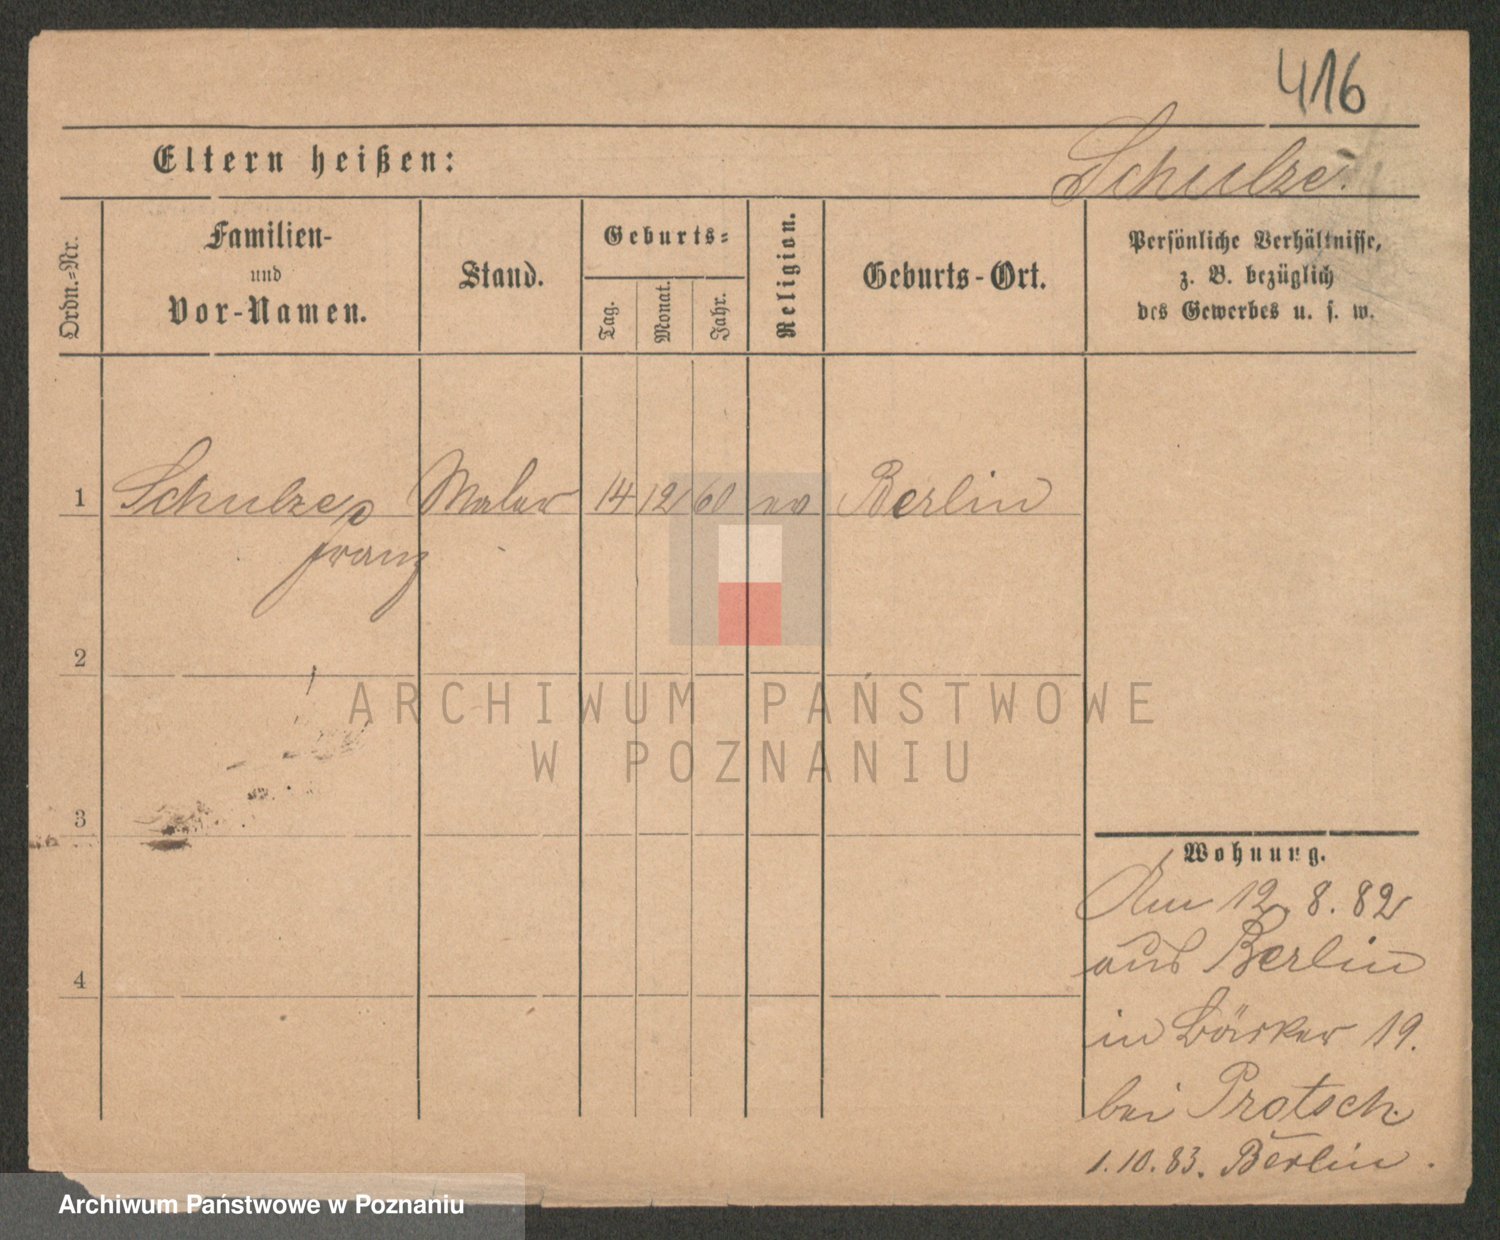 416
Eltern heißen:
Schulze.
Ordn.-Nr.
Familien-
und
Vor-Namen.
Stand.
Geburts-
Tag.
Monat.
Jahr.
Religion.
Geburts-Ort.
Persönliche Verhältnisse,
z. B. bezüglich
des Gewerbes u. s. w.
1 Schulze, Maler 14 12 60 ev Berlin
Franz
2
ARCHIWUM PAŃSTWOWE
W POZNANIU
3
Wohnung.
Am 12. 8. 82
aus Berlin
4
in Bäcker 19.
bei Protsch.
1.10.83. Berlin.
Archiwum Państwowe w Poznaniu